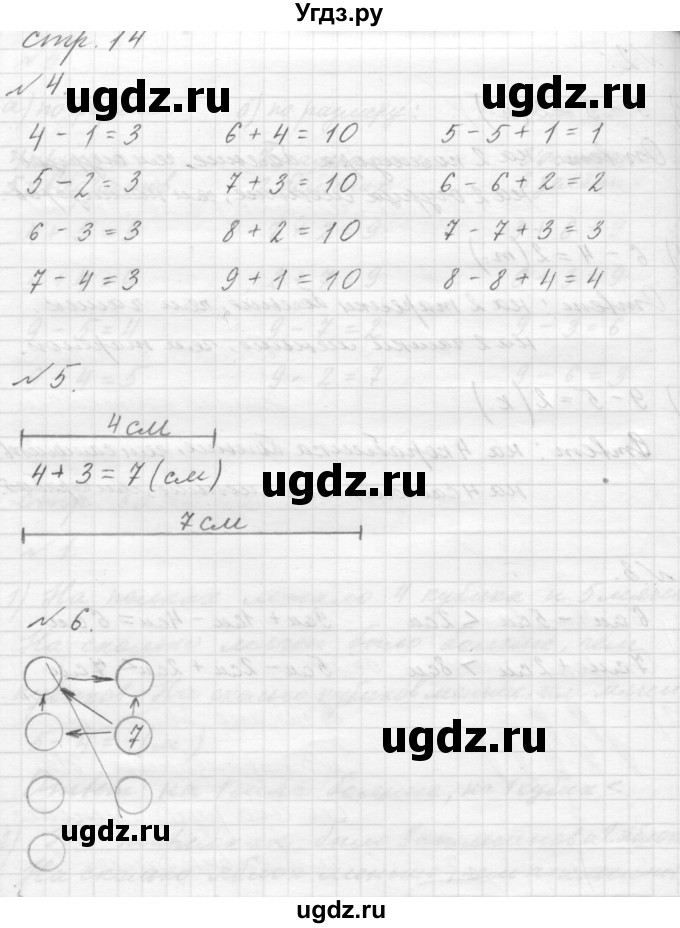 Угдз.ру
стр. 14
№ 4.
ugdz.ru ugdz.ru
4 - 1 = 3 6 + 4 = 10 5 - 5 + 1 = 1
5 - 2 = 3 7 + 3 = 10 6 - 6 + 2 = 2
6 - 3 = 3 8 + 2 = 10 7 - 7 + 3 = 3
7 - 4 = 3 9 + 1 = 10 8 - 8 + 4 = 4
№ 5.
4 см
4 + 3 = 7 (см)
ugdz.ru
7 см
№ 6.
7
ugdz.ru
ugdz.ru
ugdz.ru